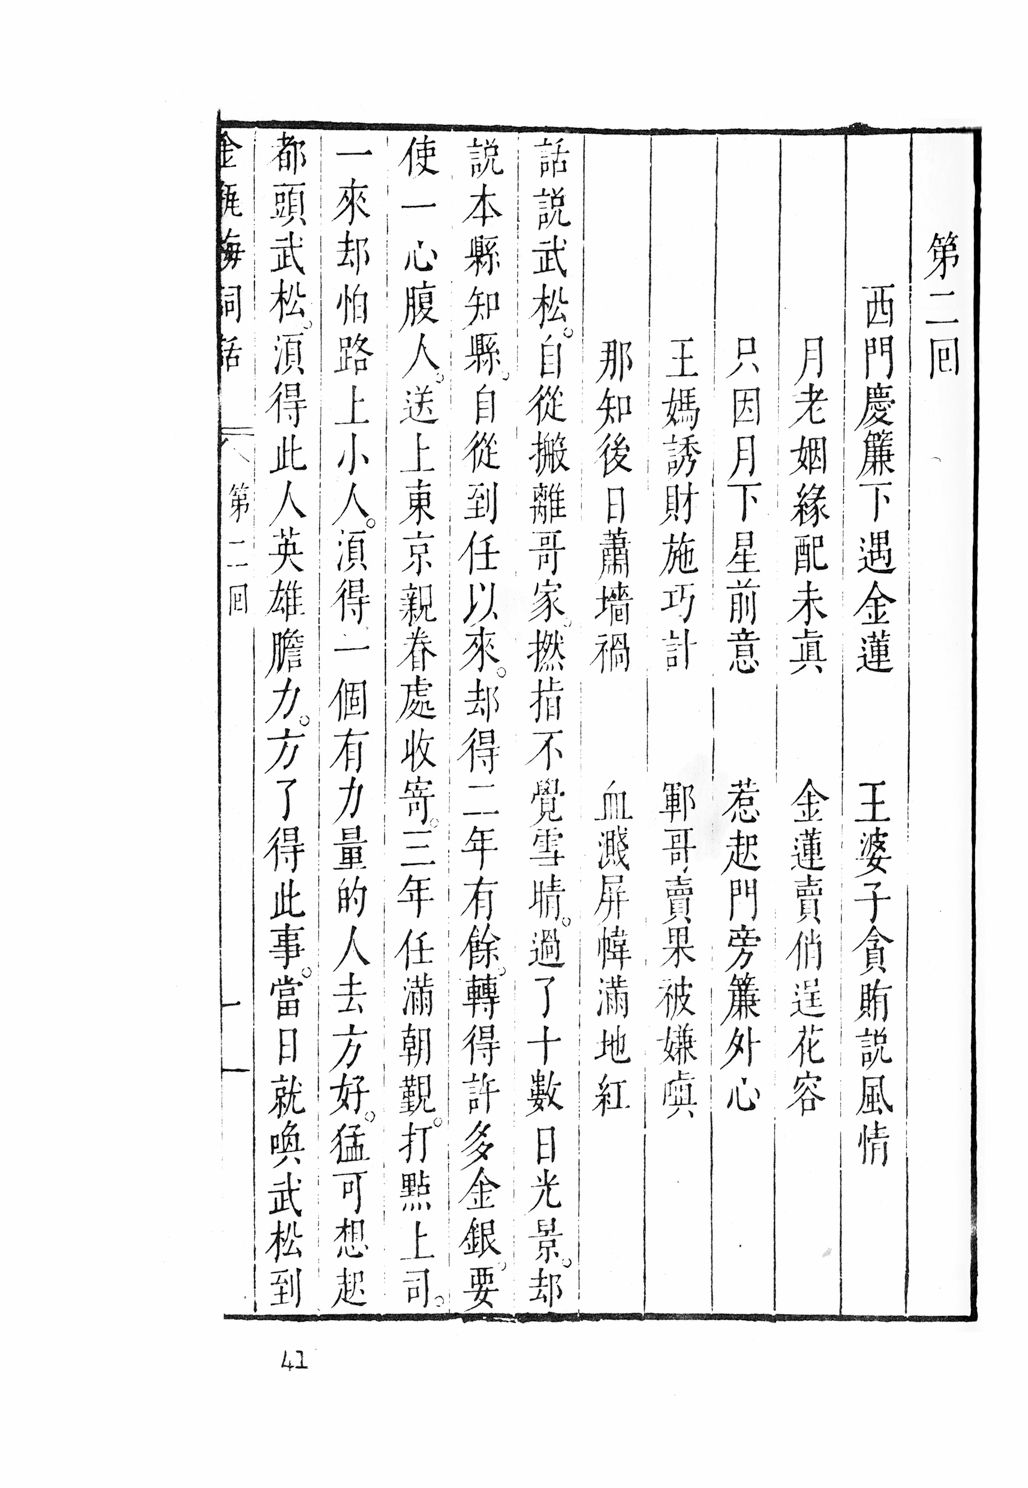 第二囘
西門慶簾下遇金蓮　王婆子貪賄説風情
月老姻緣配未眞　金蓮賣俏逞花容
只因月下星前意　惹起門旁簾外心
王媽誘財施巧計　鄆哥賣果被嫌嗔
那知後日蕭墻禍　血濺屏幃滿地紅
話説武松。自從搬離哥家。撚指不覺雪晴。過了十數日光景。却
説本縣知縣。自從到任以來。却得二年有餘。轉得許多金銀。要
使一心腹人。送上東京親眷處收寄。三年任滿朝覲。打點上司。
一來却怕路上小人。湏得一個有力量的人去方好。猛可想起
都頭武松。湏得此人英雄膽力。方了得此事。當日就喚武松到
金瓶梅詞話　第二囘　一
41